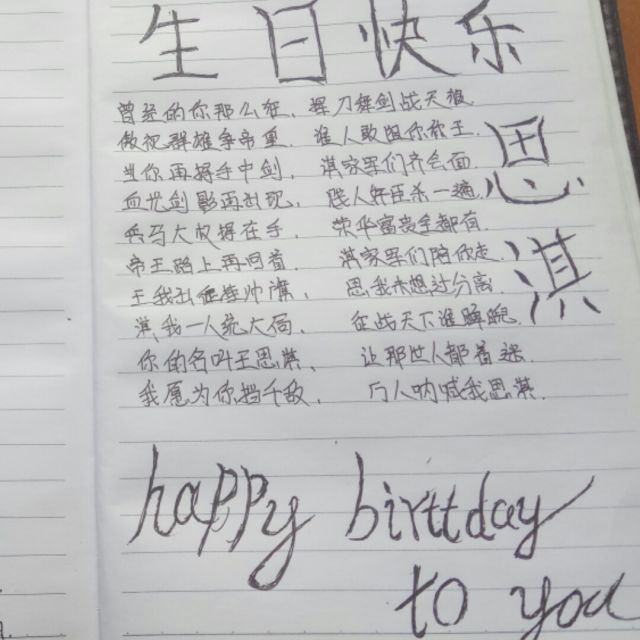 生日快乐
曾经的你那么狂、提刀舞剑战天狼
傲视群雄争帝皇、谁人敢阻你称王
当你再握手中剑、淇家军们齐会面
血光剑影再出现、贱人奸臣杀一遍
兵马大权握在手、荣华富贵全都有
帝王路上再回首、淇家军们陪你走
王我 思我未想过分离
淇我一人统大局、征战天下谁瞑眠
你的名叫王思淇、让那世人都着迷
我愿为你挡千敌、万人呐喊我思淇
思淇
happy birttday
to you